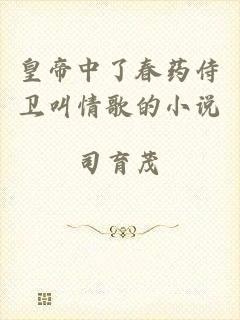 皇帝中了春药侍
卫叫情歌的小说
司育茂